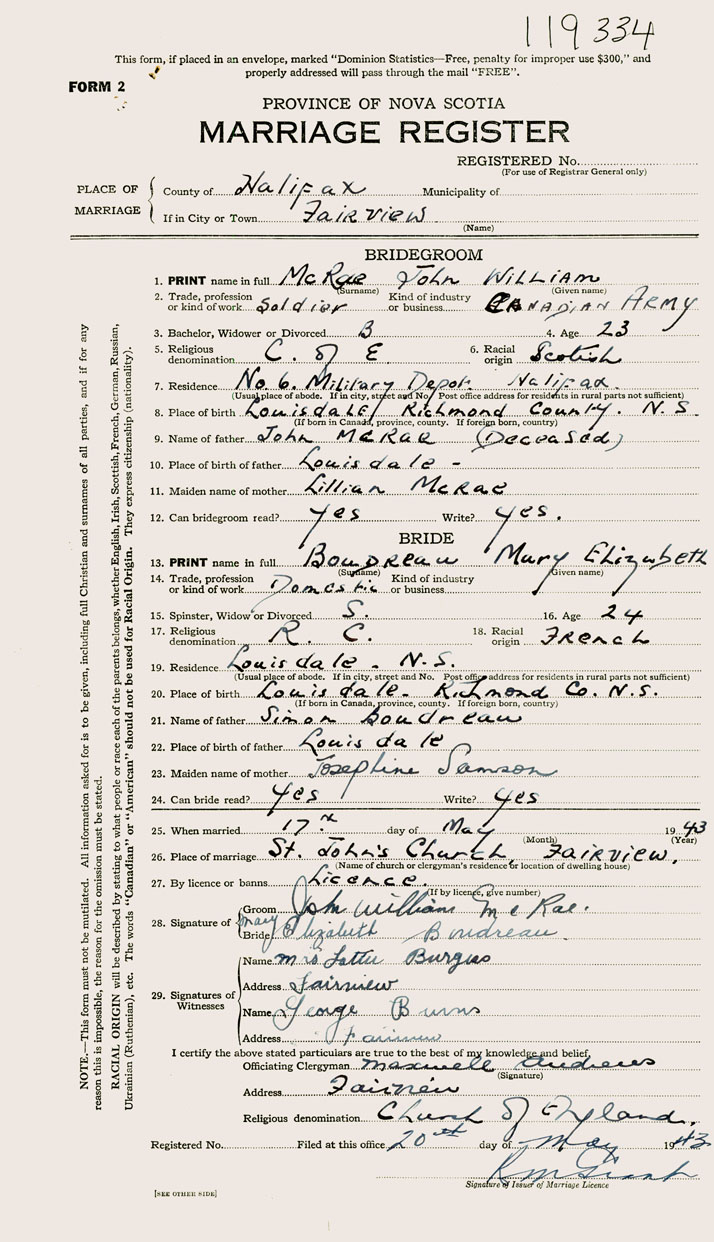 119334
This form, if placed in an envelope, marked "Dominion Statistics—Free, penalty for improper use $300," and
properly addressed will pass through the mail "FREE".
FORM 2
PROVINCE OF NOVA SCOTIA
MARRIAGE REGISTER
REGISTERED No.
(For use of Registrar General only)
PLACE OF MARRIAGE
County of Halifax Municipality of
If in City or Town Fairview
(Name)
BRIDEGROOM
1. PRINT name in full McRae John William
(Surname) (Given name)
2. Trade, profession or kind of work Soldier Kind of industry or business Canadian Army
3. Bachelor, Widower or Divorced B 4. Age 23
5. Religious denomination C. of E 6. Racial origin Scotish
7. Residence No. 6. Military Depot. Halifax.
(Usual place of abode. If in city, street and No. Post office address for residents in rural parts not sufficient)
8. Place of birth Louisdale, Richmond County. N.S.
(If born in Canada, province, county. If foreign born, country)
9. Name of father John McRae (Deceased)
10. Place of birth of father Louisdale -
11. Maiden name of mother Lillian McRae
12. Can bridegroom read? yes Write? yes.
BRIDE
13. PRINT name in full Boudreau Mary Elizabeth
(Surname) (Given name)
14. Trade, profession or kind of work Domestic Kind of industry or business
15. Spinster, Widow or Divorced S. 16. Age 24
17. Religious denomination R. C. 18. Racial origin French
19. Residence Louisdale - N.S.
(Usual place of abode. If in city, street and No. Post office address for residents in rural parts not sufficient)
20. Place of birth Louisdale - Richmond Co. N.S.
(If born in Canada, province, county. If foreign born, country)
21. Name of father Simon Boudreau
22. Place of birth of father Louisdale
23. Maiden name of mother Josephine Samson
24. Can bride read? yes Write? yes
25. When married 17th day of May 1943
(Month) (Year)
26. Place of marriage St. John's Church, Fairview.
(Name of church or clergyman's residence or location of dwelling house)
27. By licence or banns Licence.
(If by licence, give number)
28. Signature of
Groom John William McRae.
Bride Mary Elizabeth Boudreau.
29. Signatures of Witnesses
Name Mrs Burgus
Address Fairview
Name George Burns
Address Fairview
I certify the above stated particulars are true to the best of my knowledge and belief,
Officiating Clergyman Maxwell Andrews
(Signature)
Address Fairview
Religious denomination Church of England.
Registered No. Filed at this office 20th day of May 1943
Signature of Issuer of Marriage Licence
[SEE OTHER SIDE]
NOTE.—This form must not be mutilated. All information asked for is to be given, including full Christian and surnames of all parties, and if for any
reason this is impossible, the reason for the omission must be stated.
RACIAL ORIGIN will be described by stating to what people or race each of the parents belongs, whether English, Irish, Scottish, French, German, Russian,
Ukrainian (Ruthenian), etc. The words "Canadian" or "American" should not be used for Racial Origin. They express citizenship (nationality).